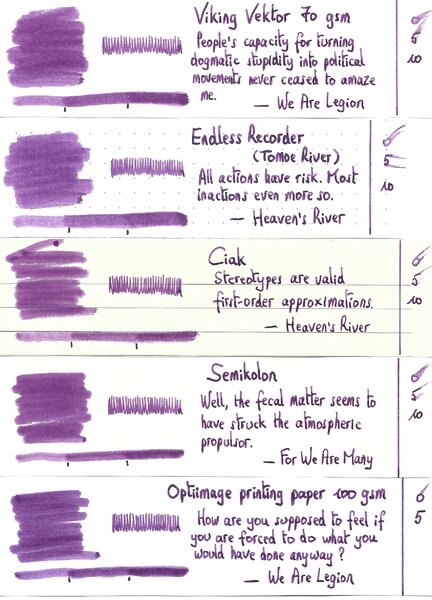 Viking Vektor 70 gsm
People's capacity for turning
dogmatic stupidity into political
movements never ceased to amaze
me.
— We Are Legion
0
5
10
Endless Recorder
(Tomoe River)
All actions have risk. Most
inactions even more so.
— Heaven's River
0
5
10
Ciak
Stereotypes are valid
first-order approximations.
— Heaven's River
0
5
10
Semikolon
Well, the fecal matter seems to
have struck the atmospheric
propulsor.
— For We Are Many
0
5
10
Optiimage printing paper 100 gsm
How are you supposed to feel if
you are forced to do what you
would have done anyway?
— We Are Legion
0
5